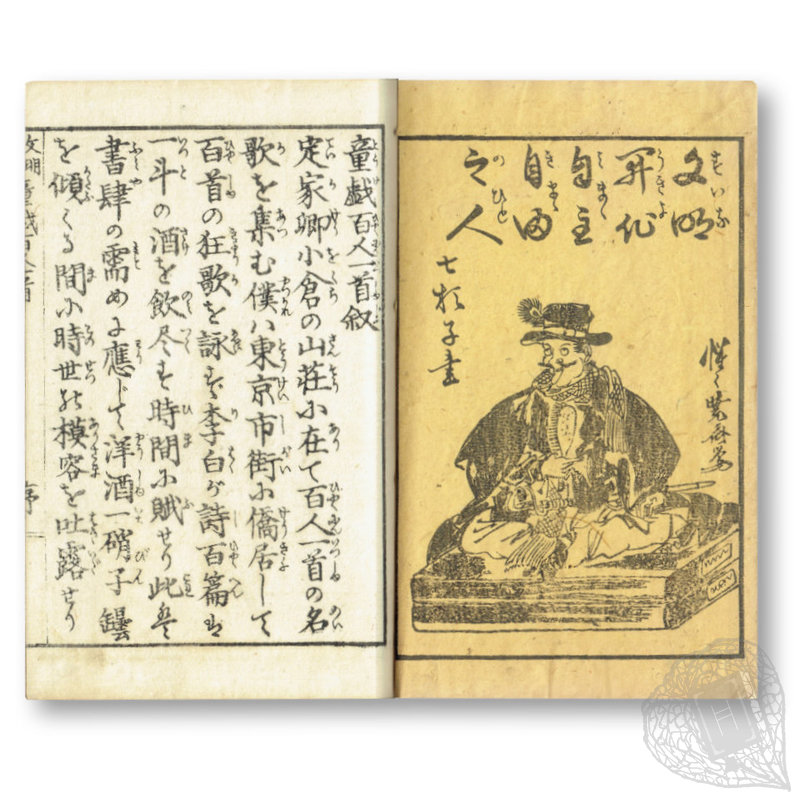 文明
開化
自主
自由
之人
七杉子書
惺々暁斎画
童戯百人一首叙
定家卿小倉の山荘に在て百人一首の名
歌を集む僕ハ東京市街に僑居して
百首の狂歌を詠ず李白ガ詩百篇ハ
一斗の酒を飲尽す時間に賦せり此は
書肆の需めに應じて洋酒一硝子罎
を傾くる間に時世の模容を吐露せり
文明童戯百人一首 序